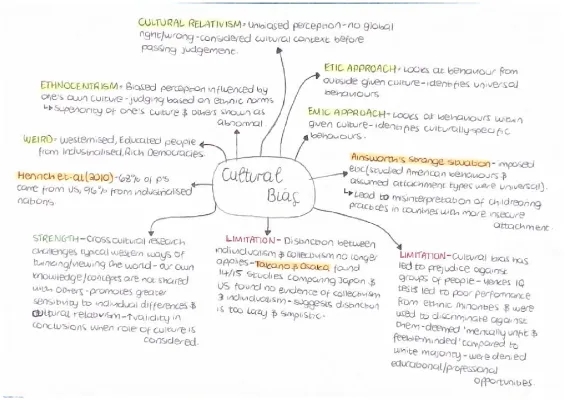 CULTURAL RELATIVISM - Unbiased perception - no global
right/wrong - considered cultural context before
passing judgement.
ETIC APPROACH - Looks at behaviour from
outside given culture - identifies universal
behaviours
ETHNOCENTRISM - Biased perception influenced by
one's own culture - judging based on ethnic norms
↳ Superiority of one's culture & others shown as
abnormal
EMIC APPROACH - Looks at behaviours within
given culture - identifies culturally-specific
behaviours.
WEIRD - Westernised, Educated people
from Industrialised, Rich Democracies.
Cultural
Bias
Ainsworth's Strange Situation - imposed
etic (studied American behaviours &
assumed attachment types were universal).
↳ Lead to misinterpretation of childrearing
practices in countries with more insecure
attachment.
Henrich et al (2010) - 68% of p's
came from US, 96% from industrialised
nations.
STRENGTH - Cross cultural research
challenges typical western ways of
thinking/viewing the world - our own
knowledge/concepts are not shared
with others - promotes greater
sensitivity to individual differences &
cultural relativism - ↑ validity in
conclusions when role of culture is
considered.
LIMITATION - Distinction between
individualism & collectivism no longer
applies - Takano & Osaka found
14/15 studies comparing Japan &
US found no evidence of collectivism
& individualism - suggests distinction
is too lazy & simplistic.
LIMITATION - Cultural bias has
led to prejudice against
groups of people - Yerkes IQ
tests led to poor performance
from ethnic minorities & were
used to discriminate against
them - deemed 'mentally unfit &
feebleminded' compared to
white majority - were denied
educational/professional
opportunities.